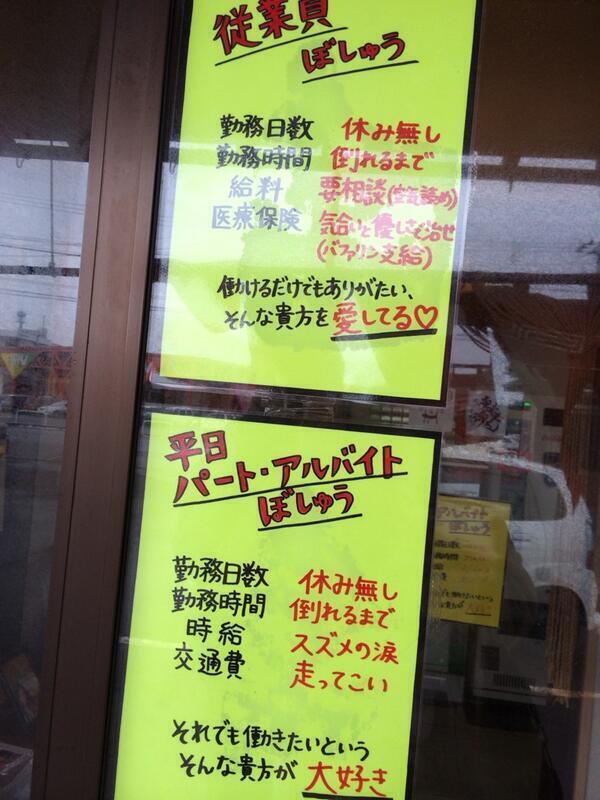 従業員
ぼしゅう
勤務日数 休み無し
勤務時間 倒れるまで
給料 要相談(空気読め)
医療保険 気合いと優しさで治せ
(バファリン支給)
働けるだけでもありがたい、
そんな貴方を愛してる♡
平日
パート・アルバイト
ぼしゅう
勤務日数 休み無し
勤務時間 倒れるまで
時給 スズメの涙
交通費 走ってこい
それでも働きたいという
そんな貴方が大好き
アルバイト
ぼしゅう